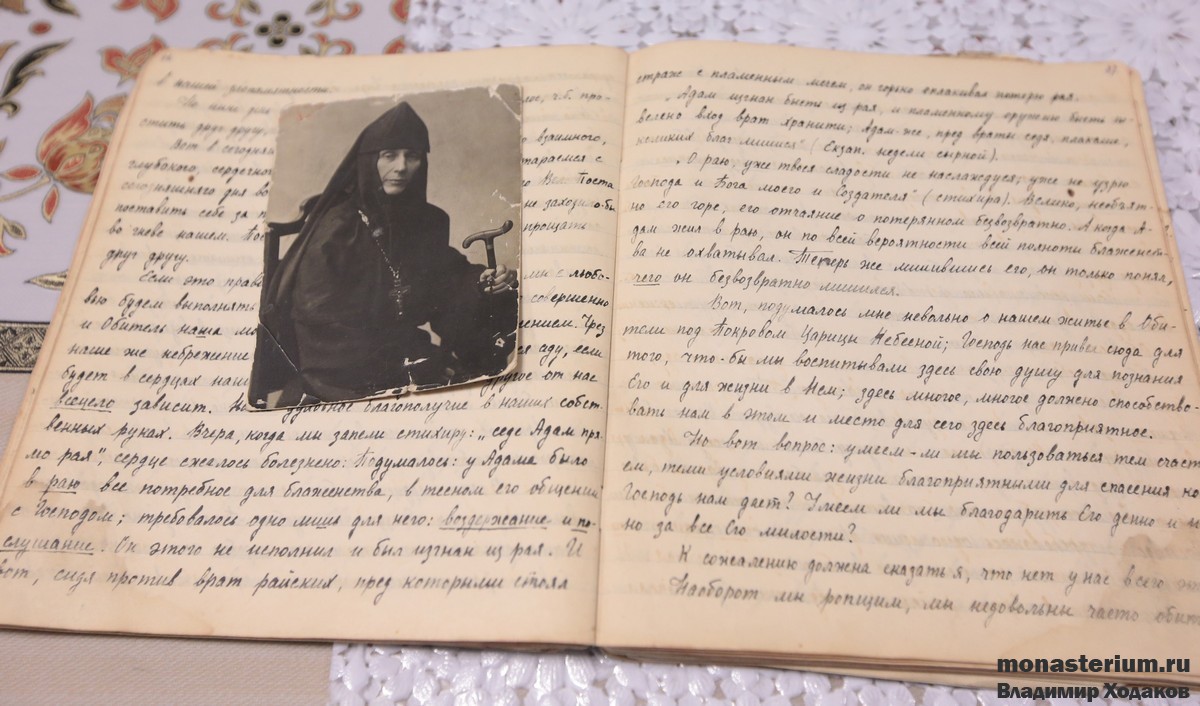 в нашей
стить друг другу,
Вот в сегодня
глубокого, сердечно
сегодняшнего дня во
поставить себе за п
во гневе нашем. Пос
друг другу.
Если это прави
вью будем выполнять
и Обитель наша мо
наше же небрежение
будет в сердцах наши
всецело зависит.
ч.б. про-
взаимного,
тараемся с
Вел. Поста
не заходило-бы
прощать
ми с любо-
совершенно
ением. Чрез
аду, если
другое от нас
духовное благополучие в наших собст-
венных руках. Вчера, когда мы запели стихиру: „седе Адам пря-
мо рая", сердце сжалось болезнено: Подумалось: у Адама было
в раю все потребное для блаженства, в тесном его общении
с Господом; требовалось одно лишь для него: воздержание и по-
слушание. Он этого не исполнил и был изгнан из рая. И
вот, сидя против врат райских, пред которыми стоял
27
страж с пламенным мечем, он горько оплакивал потерю рая.
„Адам изгнан бысть из рая, и пламенному оружию бысть по-
велено вход врат хранити; Адам-же, пред враты седя, плакаше,
великих благ лишися" (Екзап. недели сырной).
„О раю, уже твоея сладости не наслаждуся; уже не узрю
Господа и Бога моего и Создателя" (стихира). Велико, необъят-
но его горе, его отчаяние о потерянном безвозвратно. А когда А-
дам жил в раю, он по всей вероятности всей полноты блаженст-
ва не охватывал. Теперь же лишившись его, он только понял,
чего он безвозвратно лишился.
Вот, подумалось мне невольно о нашем житье в Оби-
тели под Покровом Царицы Небесной; Господь нас привел сюда для
того, что-бы мы воспитывали здесь свою душу для познания
Его и для жизни в Нем; здесь многое, многое должно способство-
вать нам в этом и место для сего здесь благоприятное.
Но вот вопрос: умеем-ли мы пользоваться тем счасть
ем, теми условиями жизни благоприятными для спасения ко
Господь нам дает? Умеем ли мы благодарить Его денно и н
но за все Его милости?
К сожалению должна сказать я, что нет у нас всего э
Наоборот мы ропщим, мы недовольны часто обит
monasterium.ru
Владимир Ходаков